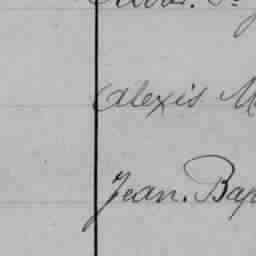 Alexis M
Jean. Bap